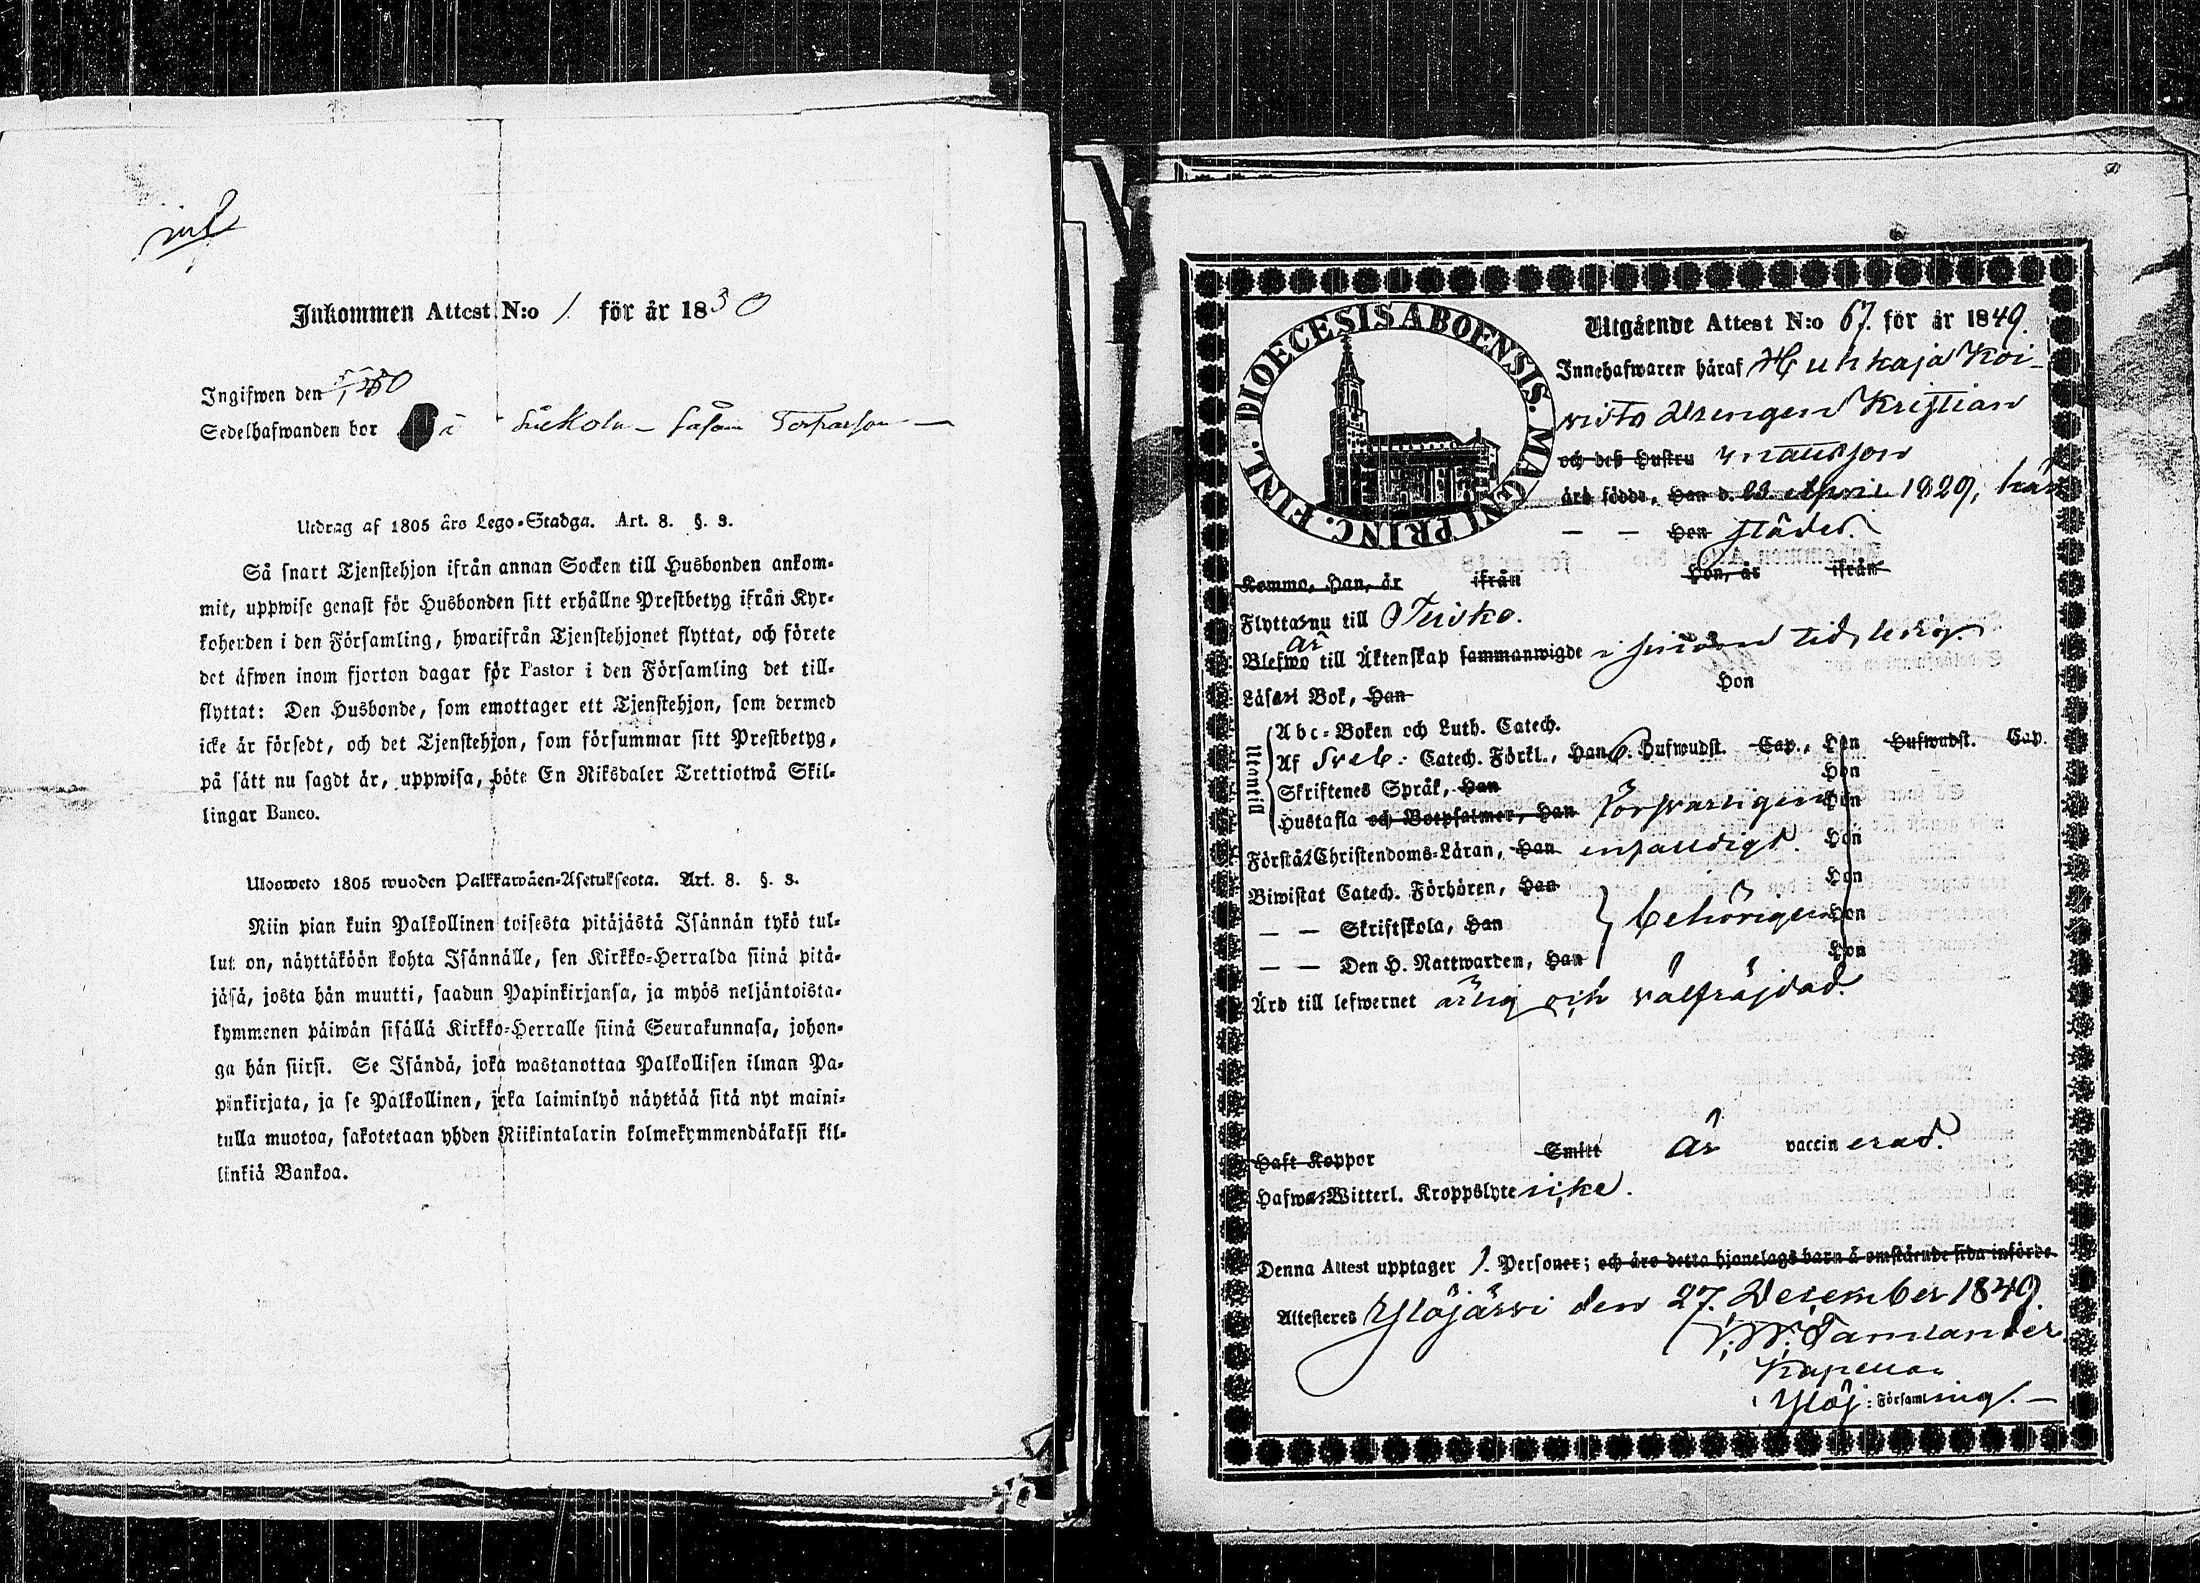 Inkommen Attest N:o 1 för år 1850
Ingifwen den
Sedelhafwanden bor
Utdrag af 1805 års Lego-Stadga. Art. 8. §. 3.
Så snart Tjenstehjon ifrån annan Socken till Husbonden ankom-
mit, uppwise genast för Husbonden sitt erhållne Prestbetyg ifrån Kyr-
koherden i den Församling, hwarifrån Tjenstehjonet flyttat, och förete
det äfwen inom fjorton dagar för Pastor i den Församling det till-
flyttat: Den Husbonde, som emottager ett Tjenstehjon, som dermed
icke är försedt, och det Tjenstehjon, som försummar sitt Prestbetyg,
på sätt nu sagdt är, uppwisa, böte En Riksdaler Trettiotwå Skil-
lingar Banco.
Ulosweto 1805 wuoden Palkkawäen-Asetuksesta. Art. 8. §. 3.
Niin pian kuin Palkollinen toisesta pitäjästä Isännän tykö tul-
lut on, näyttäköön kohta Isännälle, sen Kirkko-Herralda siinä pitä-
jäsä, josta hän muutti, saadun Papinkirjansa, ja myös neljäntoista-
kymmenen päiwän sisällä Kirkko-Herralle siinä Seurakunnasa, johon-
ga hän siirsi. Se Isändä, joka wastanottaa Palkollisen ilman Pa-
pinkirjata, ja se Palkollinen, joka laiminlyö näyttää sitä nyt maini-
tulla muotoa, sakotetaan yhden Riikintalarin kolmekymmendäkaksi kil-
linkiä Bankoa.
DIOECESIS ABOENSIS. MAGNI PRINC. FINL.
Utgående Attest N:o 67. för år 1849.
Innehafwaren häraf Huhkaja Koi-
visto Drengen Kristian
och dess Hustru Mattsson
äro födde, Han d. 23. April 1829, här
— — Hon städes.
Komma, Han, år ifrån Hon, år ifrån
Flyttar nu till Teisko.
är
Blefwo till Äktenskap sammanwigde i sin tid ledig.
Läser i Bok, Han Hon
Utantill
Abc-Boken och Luth. Catech.
Af Sveb: Catech. Förkl., Han 6. Hufwudst. Cap., Hon Hufwudst. Cap.
Skriftenes Språk, Han Hon
Hustafla och Botpsalmer, Han försvarligen Hon
Förstår Christendoms-Läran, Han enfaldigt. Hon
Biwistat Catech. Förhören, Han Hon
— — Skriftskola, Han behörigen Hon
— — Den H. Nattwarden, Han Hon
Äro till lefwernet ärlig och välfräjdad.
Haft Koppor Smitt är vaccinerad.
Hafwa Witterl. Kroppslyte icke.
Denna Attest upptager 1. Personer; och äro detta hjonelags barn å omstående sida införde.
Attesteres Ylöjärvi den 27. December 1849.
Tamlander
Kapellan
i Ylöj: Församling. —